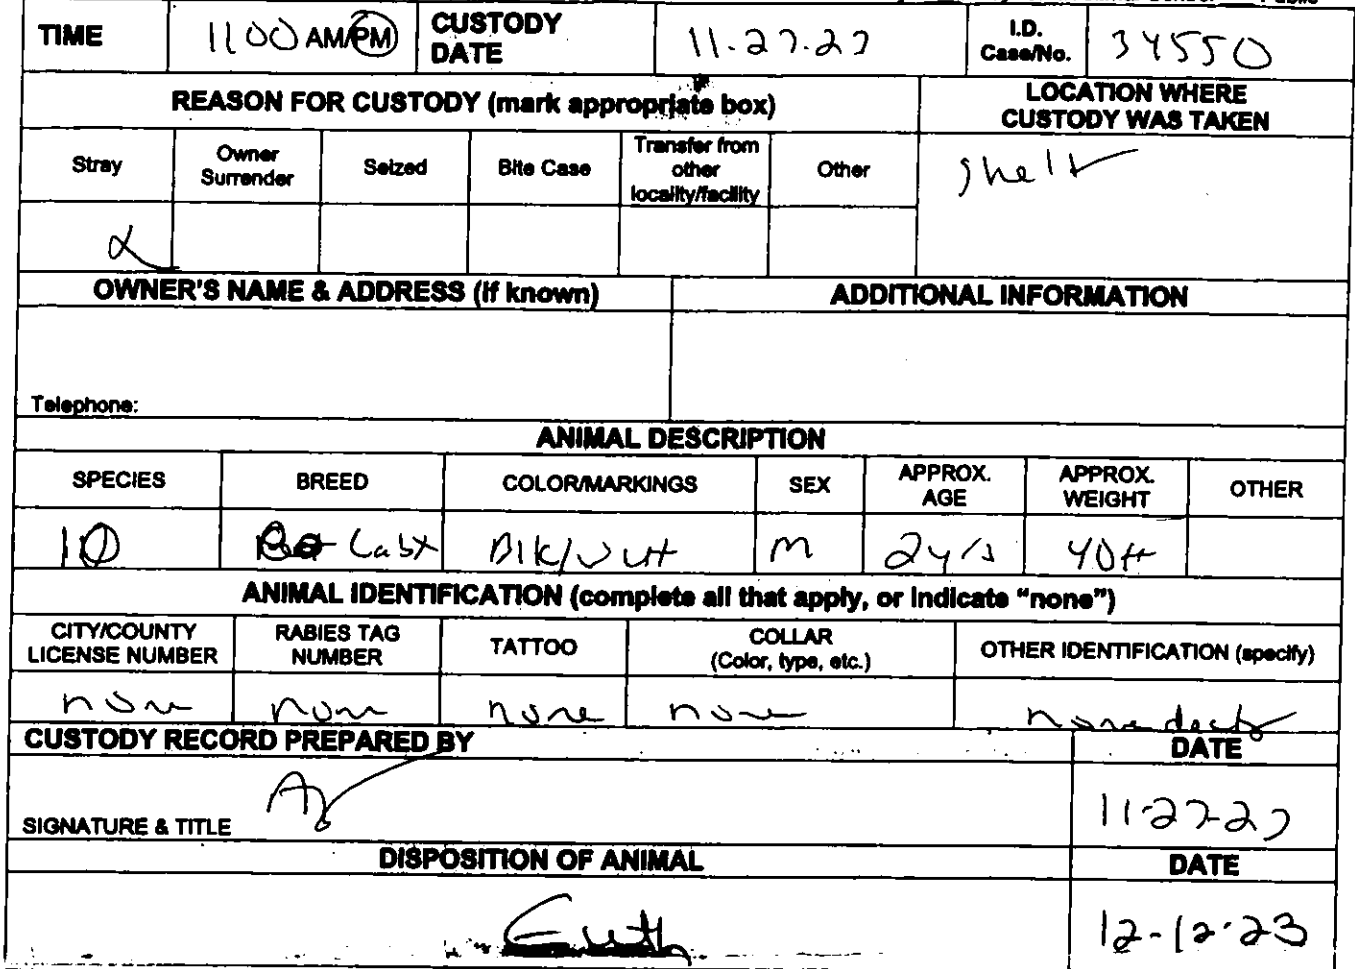 TIME 1100 AM/PM CUSTODY DATE 11-27-23 I.D. Case/No. 34550
REASON FOR CUSTODY (mark appropriate box) LOCATION WHERE CUSTODY WAS TAKEN
Stray Owner Surrender Seized Bite Case Transfer from other locality/facility Other
OWNER'S NAME & ADDRESS (if known) ADDITIONAL INFORMATION
Telephone:
ANIMAL DESCRIPTION
SPECIES BREED COLOR/MARKINGS SEX APPROX. AGE APPROX. WEIGHT OTHER
Labx Blk/wht M 2yrs 40#
ANIMAL IDENTIFICATION (complete all that apply, or indicate “none”)
CITY/COUNTY LICENSE NUMBER RABIES TAG NUMBER TATTOO COLLAR (Color, type, etc.) OTHER IDENTIFICATION (specify)
none none none none none
CUSTODY RECORD PREPARED BY DATE
SIGNATURE & TITLE 11-27-23
DISPOSITION OF ANIMAL DATE
Euth 12-12-23